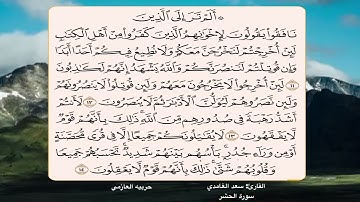 ۞ أَلَمْ تَرَ إِلَى ٱلَّذِينَ
نَافَقُوا۟ يَقُولُونَ لِإِخْوَٰنِهِمُ ٱلَّذِينَ كَفَرُوا۟ مِنْ أَهْلِ ٱلْكِتَٰبِ
لَئِنْ أُخْرِجْتُمْ لَنَخْرُجَنَّ مَعَكُمْ وَلَا نُطِيعُ فِيكُمْ أَحَدًا أَبَدًا
وَإِن قُوتِلْتُمْ لَنَنصُرَنَّكُمْ وَٱللَّهُ يَشْهَدُ إِنَّهُمْ لَكَٰذِبُونَ
١١ لَئِنْ أُخْرِجُوا۟ لَا يَخْرُجُونَ مَعَهُمْ وَلَئِن قُوتِلُوا۟ لَا يَنصُرُونَهُمْ
وَلَئِن نَّصَرُوهُمْ لَيُوَلُّنَّ ٱلْأَدْبَٰرَ ثُمَّ لَا يُنصَرُونَ ١٢ لَأَنتُمْ
أَشَدُّ رَهْبَةً فِى صُدُورِهِم مِّنَ ٱللَّهِ ذَٰلِكَ بِأَنَّهُمْ قَوْمٌ
لَّا يَفْقَهُونَ ١٣ لَا يُقَٰتِلُونَكُمْ جَمِيعًا إِلَّا فِى قُرًى مُّحَصَّنَةٍ
أَوْ مِن وَرَآءِ جُدُرٍۭ بَأْسُهُم بَيْنَهُمْ شَدِيدٌ تَحْسَبُهُمْ جَمِيعًا
وَقُلُوبُهُمْ شَتَّىٰ ذَٰلِكَ بِأَنَّهُمْ قَوْمٌ لَّا يَعْقِلُونَ ١٤
القارئ سعد الغامدي
سورة الحشر
حربيه العازمي